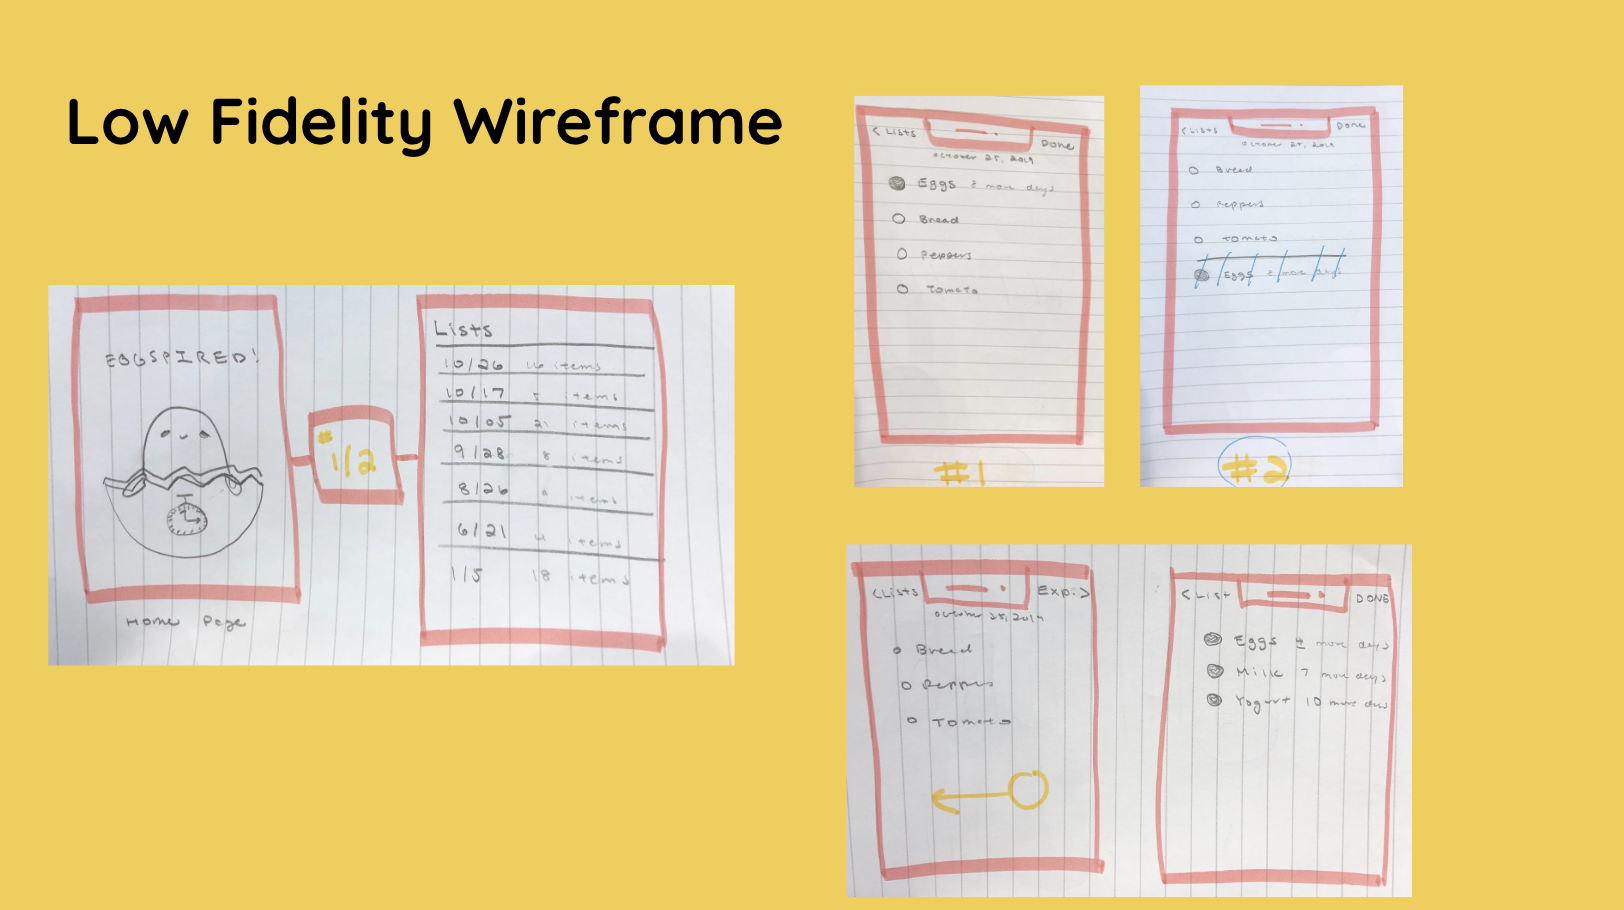 Low Fidelity Wireframe
EGGSPIRED!
Home Page
# 1/2
Lists
10/26 items
10/17 items
10/05 21 items
9/28 8 items
8/26 items
6/21 items
1/5 18 items
< Lists Done
October 25, 2019
Eggs more days
Bread
Peppers
Tomato
#1
< Lists Done
October 25, 2019
Bread
Peppers
Tomato
Eggs more days
#2
< Lists Exp. >
October 25, 2019
Bread
Peppers
Tomato
< List DONE
Eggs 4 more days
Milk 7 more days
Yogurt 10 more days